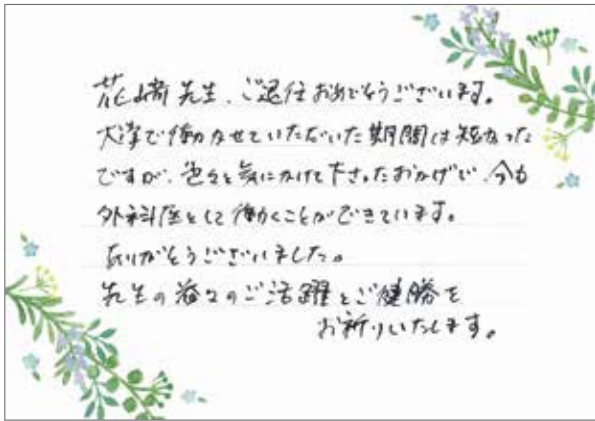 花崎先生、ご退任おめでとうございます。
大学で働かせていただいた期間は短かった
ですが、色々と気にかけて下さったおかげで、今も
外科医として働くことができています。
ありがとうございました。
先生の益々のご活躍とご健勝を
お祈りいたします。